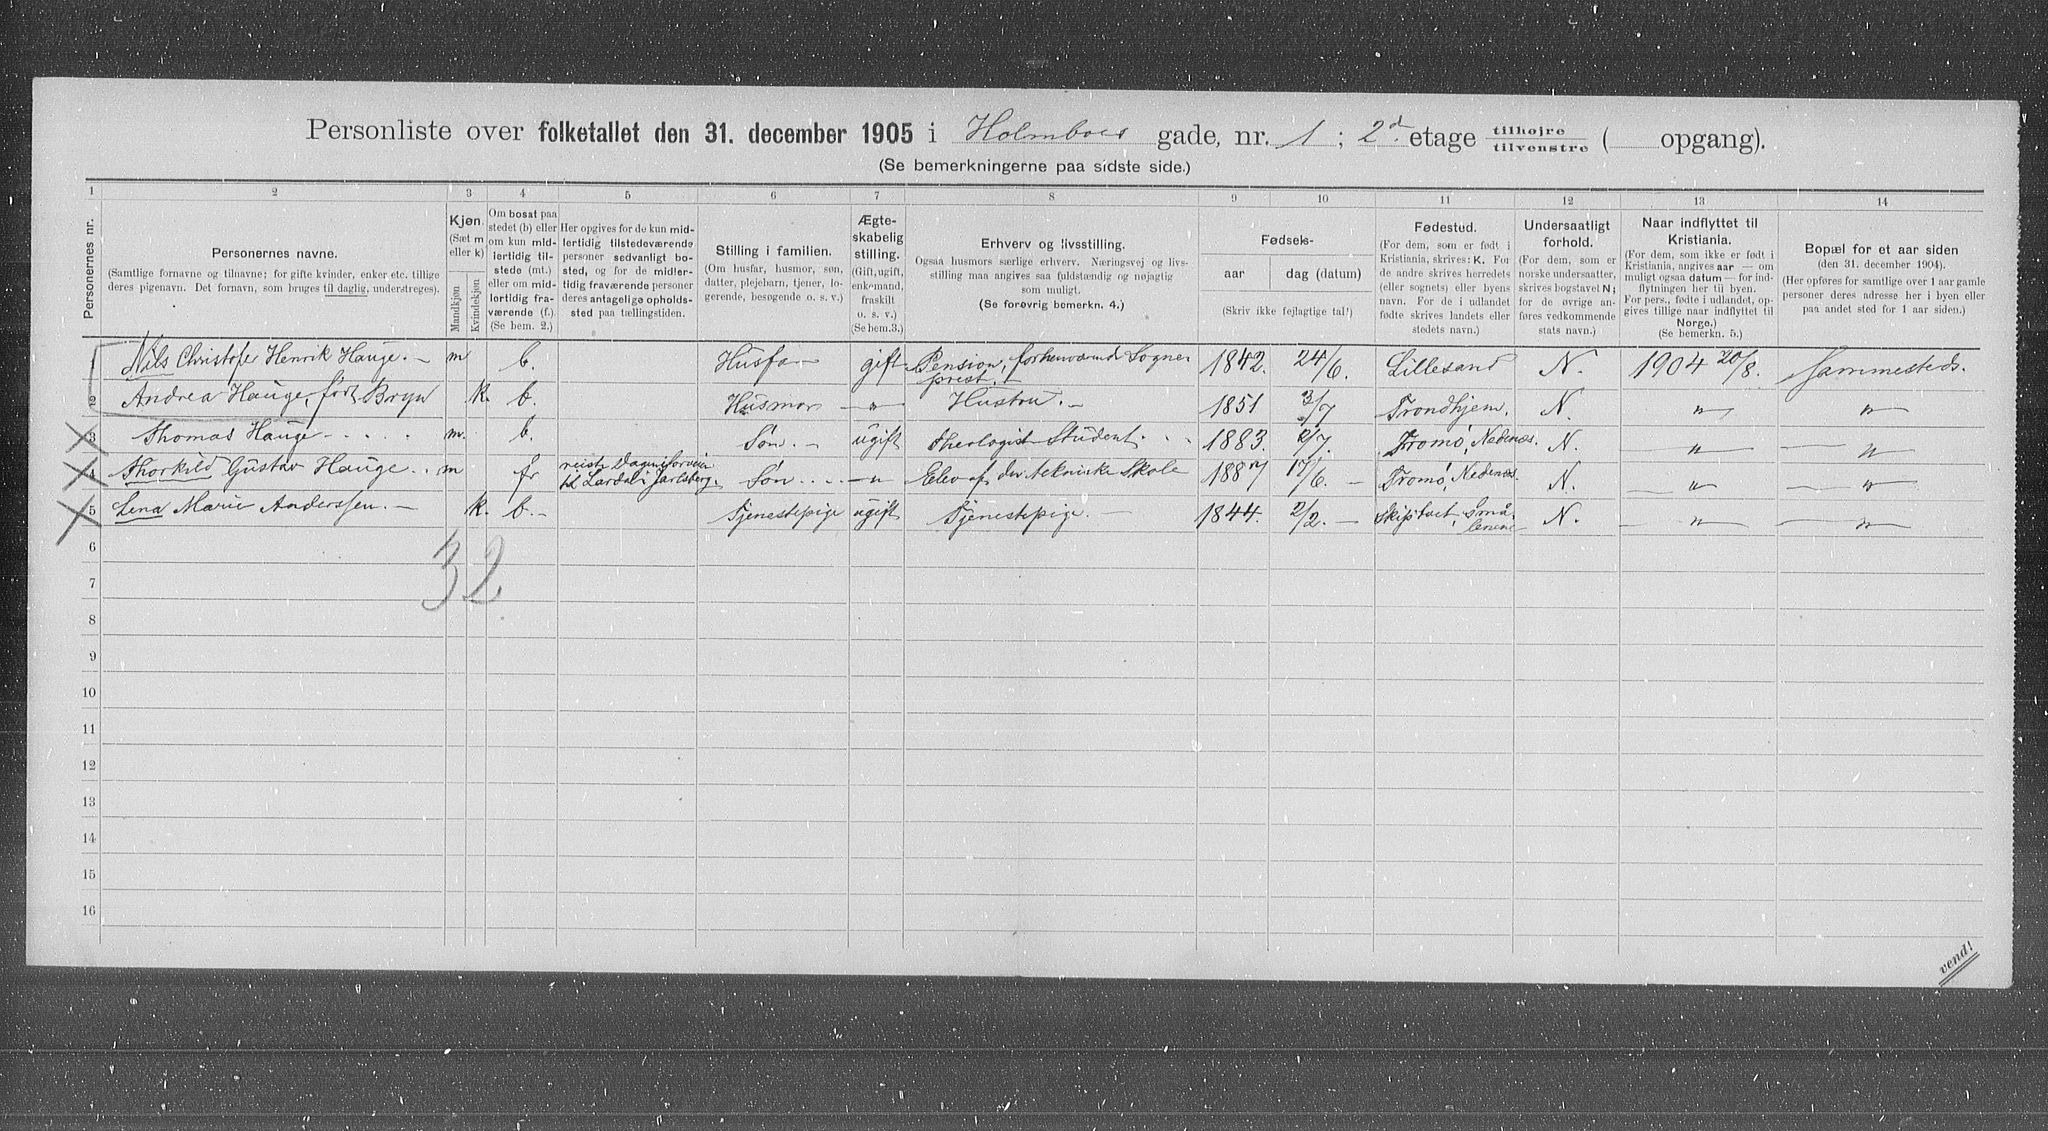 Personliste over folketallet den 31. december 1905 i Holmboes gade, nr. 1 ; 2d etage tilhøjre tilvenstre ( opgang).
(Se bemerkningerne paa sidste side.)
1 2 3 4 5 6 7 8 9 10 11 12 13 14
Personernes nr.
Personernes navne.
(Samtlige fornavne og tilnavne; for gifte kvinder, enker etc. tillige
deres pigenavn. Det fornavn, som bruges til daglig, understreges).
Kjøn.
(Sæt m
eller k)
Mandkjøn
Kvindekjøn
Om bosat paa
stedet (b) eller
om kun mid-
lertidig til-
stede (mt.)
eller om mid-
lertidig fra-
værende (f.)
(Se bem. 2.)
Her opgives for de kun mid-
lertidig tilstedeværende
personer sedvanligt bo-
sted, og for de midler-
tidig fraværende personer
deres antagelige opholds-
sted paa tællingstiden.
Stilling i familien.
(Om husfar, husmor, søn,
datter, plejebarn, tjener, lo-
gerende, besøgende o. s. v.)
Ægte-
skabelig
stilling.
(Gift, ugift,
enkemand,
fraskilt
o. s. v.)
(Se bem.3.)
Erhverv og livsstilling.
Ogsaa husmors særlige erhverv. Næringsvej og livs-
stilling maa angives saa fuldstændig og nøjagtig
som muligt.
(Se forøvrig bemerkn. 4.)
Fødsels-
aar dag (datum)
(Skriv ikke fejlagtige tal!)
Fødested.
(For dem, som er født i
Kristiania, skrives: K. For
de andre skrives herredets
(eller sognets) eller byens
navn. For de i udlandet
fødte skrives landets eller
stedets navn.)
Undersaatligt
forhold.
(For dem, som er
norske undersaatter,
skrives bogstavet N;
for de øvrige an-
føres vedkommende
stats navn.)
Naar indflyttet til
Kristiania.
(For dem, som ikke er født i
Kristiania, angives aar — om
muligt ogsaa datum — for ind-
flytningen her til byen.
For pers., fødte i udlandet, op-
gives tillige naar indflyttet til
Norge.)
(Se bemerkn. 5.)
Bopæl for et aar siden
(den 31. december 1904).
(Her opføres for samtlige over 1 aar gamle
personer deres adresse her i byen eller
paa andet sted for 1 aar siden.)
Nils Christofer Henrik Hauge. m b. Husfar gift Pension, forhenværende Sogne-
prest. 1842. 24/6. Lillesand N. 1904 20/8. Sammesteds.
2 Andrea Hauge, født Bryn k. b. Husmor — " — Hustru. 1851 3/7 Trondhjem. N. " "
3 Thomas Hauge m. b. Søn. ugift theologist Student. 1883. 2/7. Tromö, Nedenæs. N. " "
4 Thorkild Gustav Hauge. m fr reiste Dagen forveien
til Lardal i Jarlsberg. Søn — " Elev af den tekniske Skole 1887 17/6. Tromö, Nedenæs. N. " "
5 Lena Marie Anderssen. k. b. Tjenestepige ugift Tjenestepige. 1844. 2/2. Skiptvet, Små-
lenene N. " "
32
6
7
8
9
10
11
12
13
14
15
16
vend!